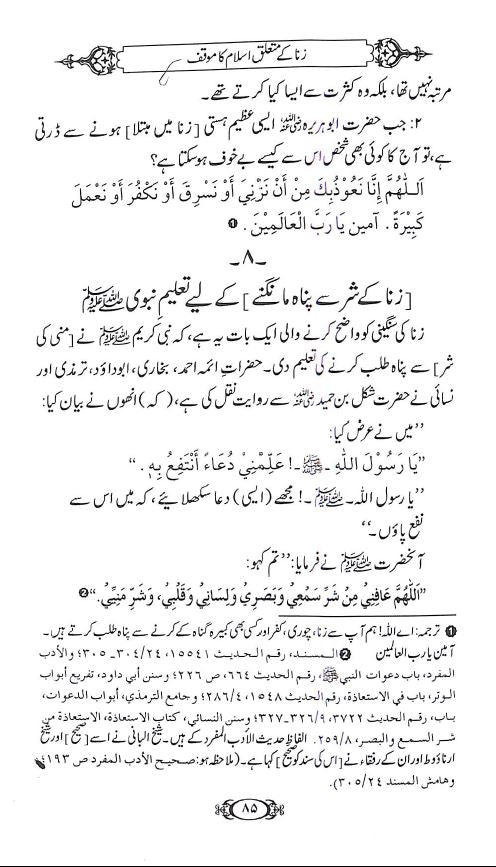 زنا کے متعلق اسلام کا موقف
مرتبہ نہیں تھا، بلکہ وہ کثرت سے ایسا کیا کرتے تھے۔
۲: جب حضرت ابوہریرہ رضی اللہ عنہ ایسی عظیم ہستی [زنا میں مبتلا] ہونے سے ڈرتی
ہے، تو آج کا کوئی بھی شخص اس سے کیسے بے خوف ہو سکتا ہے؟
اَللّٰهُمَّ إِنَّا نَعُوْذُ بِكَ مِنْ أَنْ نَزْنِيَ أَوْ نَسْرِقَ أَوْ نَكْفُرَ أَوْ نَعْمَلَ
كَبِيْرَةً. آمين يَا رَبَّ الْعَالَمِيْنَ. ❶
ـ۸ـ
[زنا کے شر سے پناہ مانگنے] کے لیے تعلیمِ نبوی ﷺ
زنا کی سنگینی کو واضح کرنے والی ایک بات یہ ہے، کہ نبی کریم ﷺ نے [منی کی
شر] سے پناہ طلب کرنے کی تعلیم دی۔ حضراتِ ائمہ احمد، بخاری، ابوداؤد، ترمذی اور
نسائی نے حضرت شکل بن حمید رضی اللہ عنہ سے روایت نقل کی ہے، (کہ) انھوں نے بیان کیا:
”میں نے عرض کیا:
”يَا رَسُوْلَ اللهِ ـ ﷺ ـ! عَلِّمْنِيْ دُعَاءً أَنْتَفِعُ بِهِ.“
”یا رسول اللہ۔ ﷺ ۔! مجھے (ایسی) دعا سکھلائیے، کہ میں اس سے
نفع پاؤں۔“
آنحضرت ﷺ نے فرمایا: ”تم کہو:
”اَللّٰهُمَّ عَافِنِيْ مِنْ شَرِّ سَمْعِيْ وَبَصَرِيْ وَلِسَانِيْ وَقَلْبِيْ، وَشَرِّ مَنِيِّيْ.“ ❷
❶ ترجمہ: اے اللہ! ہم آپ سے زنا، چوری، کفر اور کسی بھی کبیرہ گناہ کے کرنے سے پناہ طلب کرتے ہیں۔
آمین یا رب العالمین ❷ المسند، رقم الحديث ۱۵۵۴۱، ۳۰۴/۲۴ـ۳۰۵؛ والأدب
المفرد، باب دعوات النبي ﷺ، رقم الحديث ۶۶۴، ص ۲۲۶؛ وسنن أبي داود، تفريع أبواب
الوتر، باب في الاستعاذة، رقم الحديث ۱۵۴۸، ۲۸۶/۴؛ وجامع الترمذي، أبواب الدعوات،
باب، رقم الحديث ۳۷۲۲، ۳۲۶/۹ـ۳۲۷؛ وسنن النسائي، كتاب الاستعاذة، الاستعاذة من
شر السمع والبصر، ۲۵۹/۸. الفاظِ حدیث الأدب المفرد کے ہیں۔ شیخ البانی نے اسے [صحیح] اور شیخ
ارناؤوط اور ان کے رفقاء نے [اس کی سند کو صحیح] کہا ہے۔ (ملاحظہ ہو: صحيح الأدب المفرد ص ۱۹۳؛
وهامش المسند ۳۰۵/۲۴).
۸۵